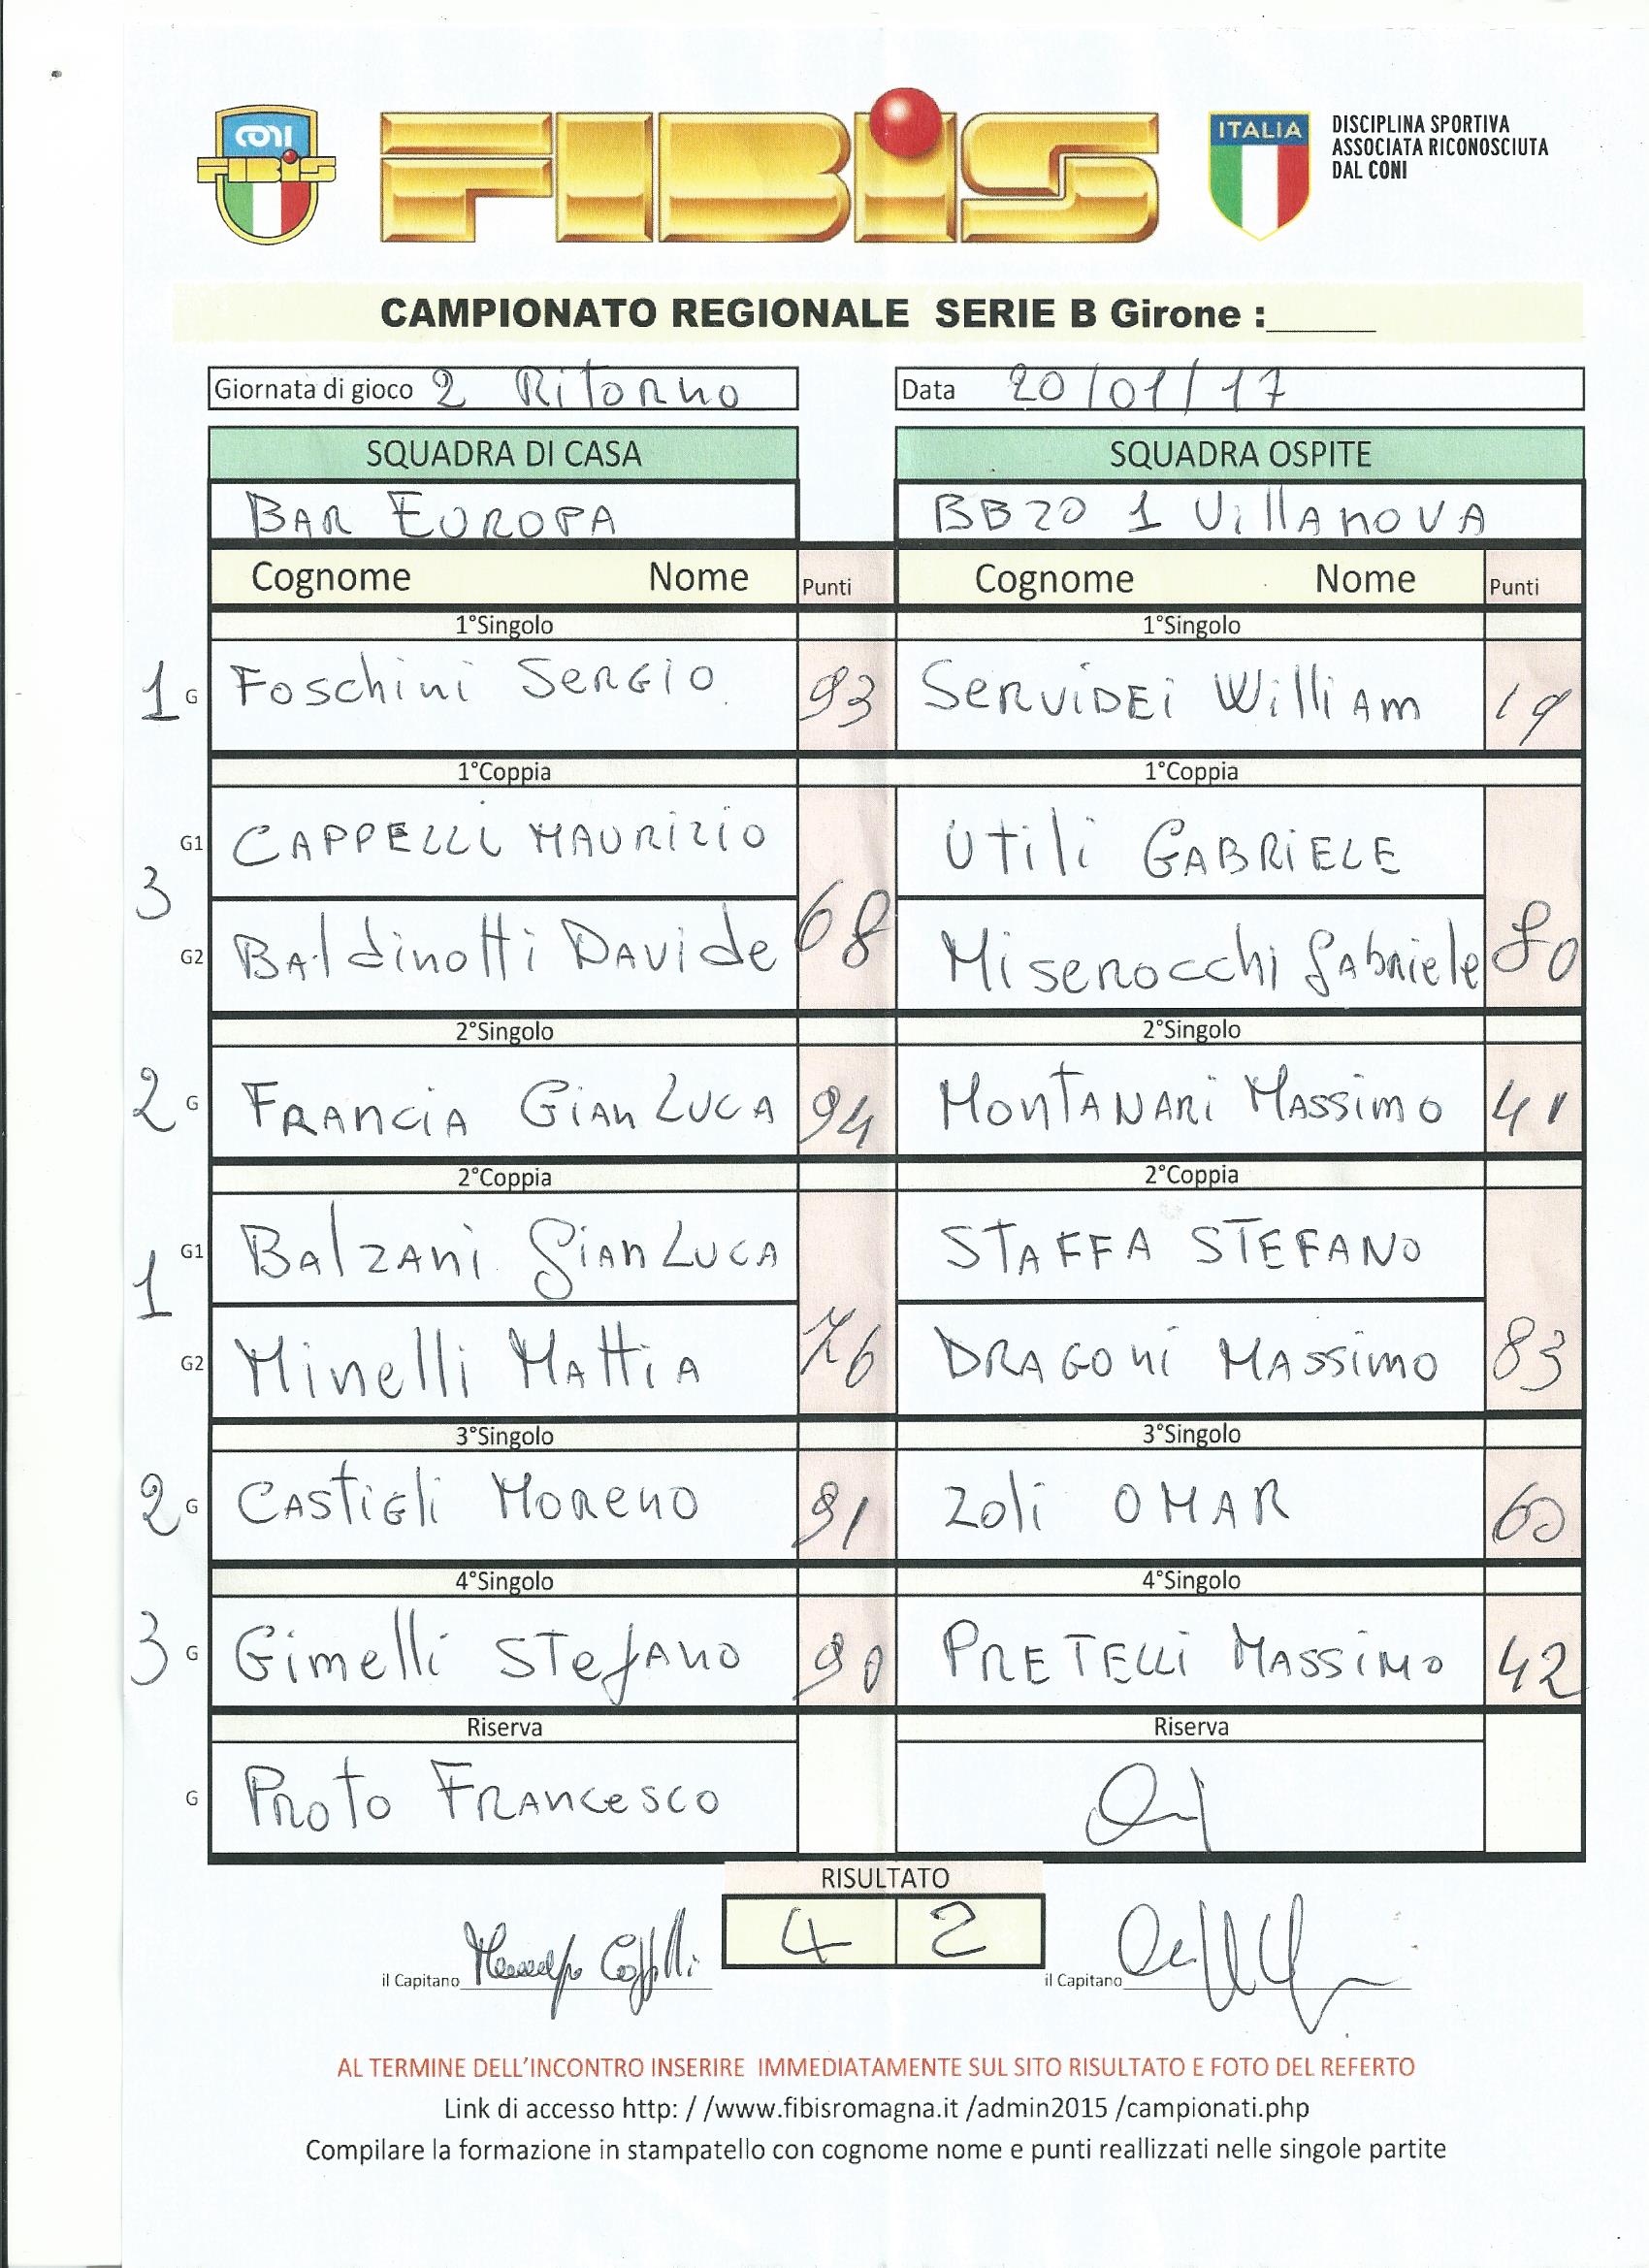 CONI
FIBIS
FIBIS
ITALIA
DISCIPLINA SPORTIVA
ASSOCIATA RICONOSCIUTA
DAL CONI
CAMPIONATO REGIONALE SERIE B Girone :______
Giornata di gioco 2 RiTORNO
Data 20/01/17
SQUADRA DI CASA SQUADRA OSPITE
BAR EUROPA BB20 1 VillANOVA
Cognome Nome Punti Cognome Nome Punti
1°Singolo 1°Singolo
1 G Foschini SERGIO 93 SERVIDEI William 19
1°Coppia 1°Coppia
G1 CAPPELLi MAURIZIO Utili GABRIELE
3 68 80
G2 BAldinotti DAVide Miserocchi GAbriele
2°Singolo 2°Singolo
2 G FRANCIA GianLUCA 94 MONTANARi MASSIMO 41
2°Coppia 2°Coppia
G1 BalZANi GIANLUCA STAFFA STEFANO
1 76 83
G2 Minelli MAttiA DRAGONi MASSIMO
3°Singolo 3°Singolo
2 G CASTIGli MORENO 91 Zoli OMAR 60
4°Singolo 4°Singolo
3 G Gimelli STefANO 90 PRETELLi MASSIMO 42
Riserva Riserva
G PROTO FRANCESCO
RISULTATO
4 2
il Capitano il Capitano
AL TERMINE DELL'INCONTRO INSERIRE IMMEDIATAMENTE SUL SITO RISULTATO E FOTO DEL REFERTO
Link di accesso http: / /www.fibisromagna.it /admin2015 /campionati.php
Compilare la formazione in stampatello con cognome nome e punti reallizzati nelle singole partite